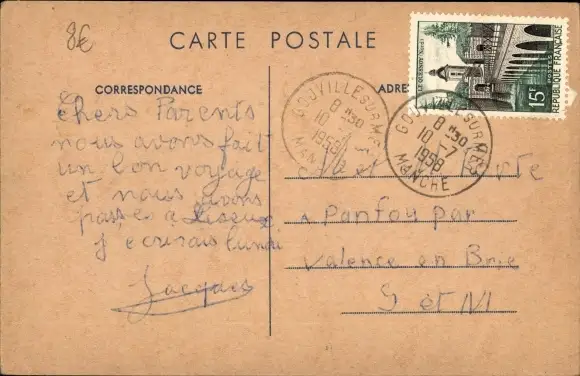 8€
CARTE POSTALE
CORRESPONDANCE
Chers Parents
nous avons fait
un bon voyage
et nous avons
passé a Lisieux
j'ecrirais lundi
Jacques
ADRE
LE QUESNOY (Nord)
15F
POSTES
REPUBLIQUE FRANÇAISE
GOUVILLE SUR MER
8 H30
10 -7
1958
MANCHE
GOUVILLE SUR MER
8 H30
10 -7
1958
MANCHE
a Panfou par
Valence en Brie
S et M